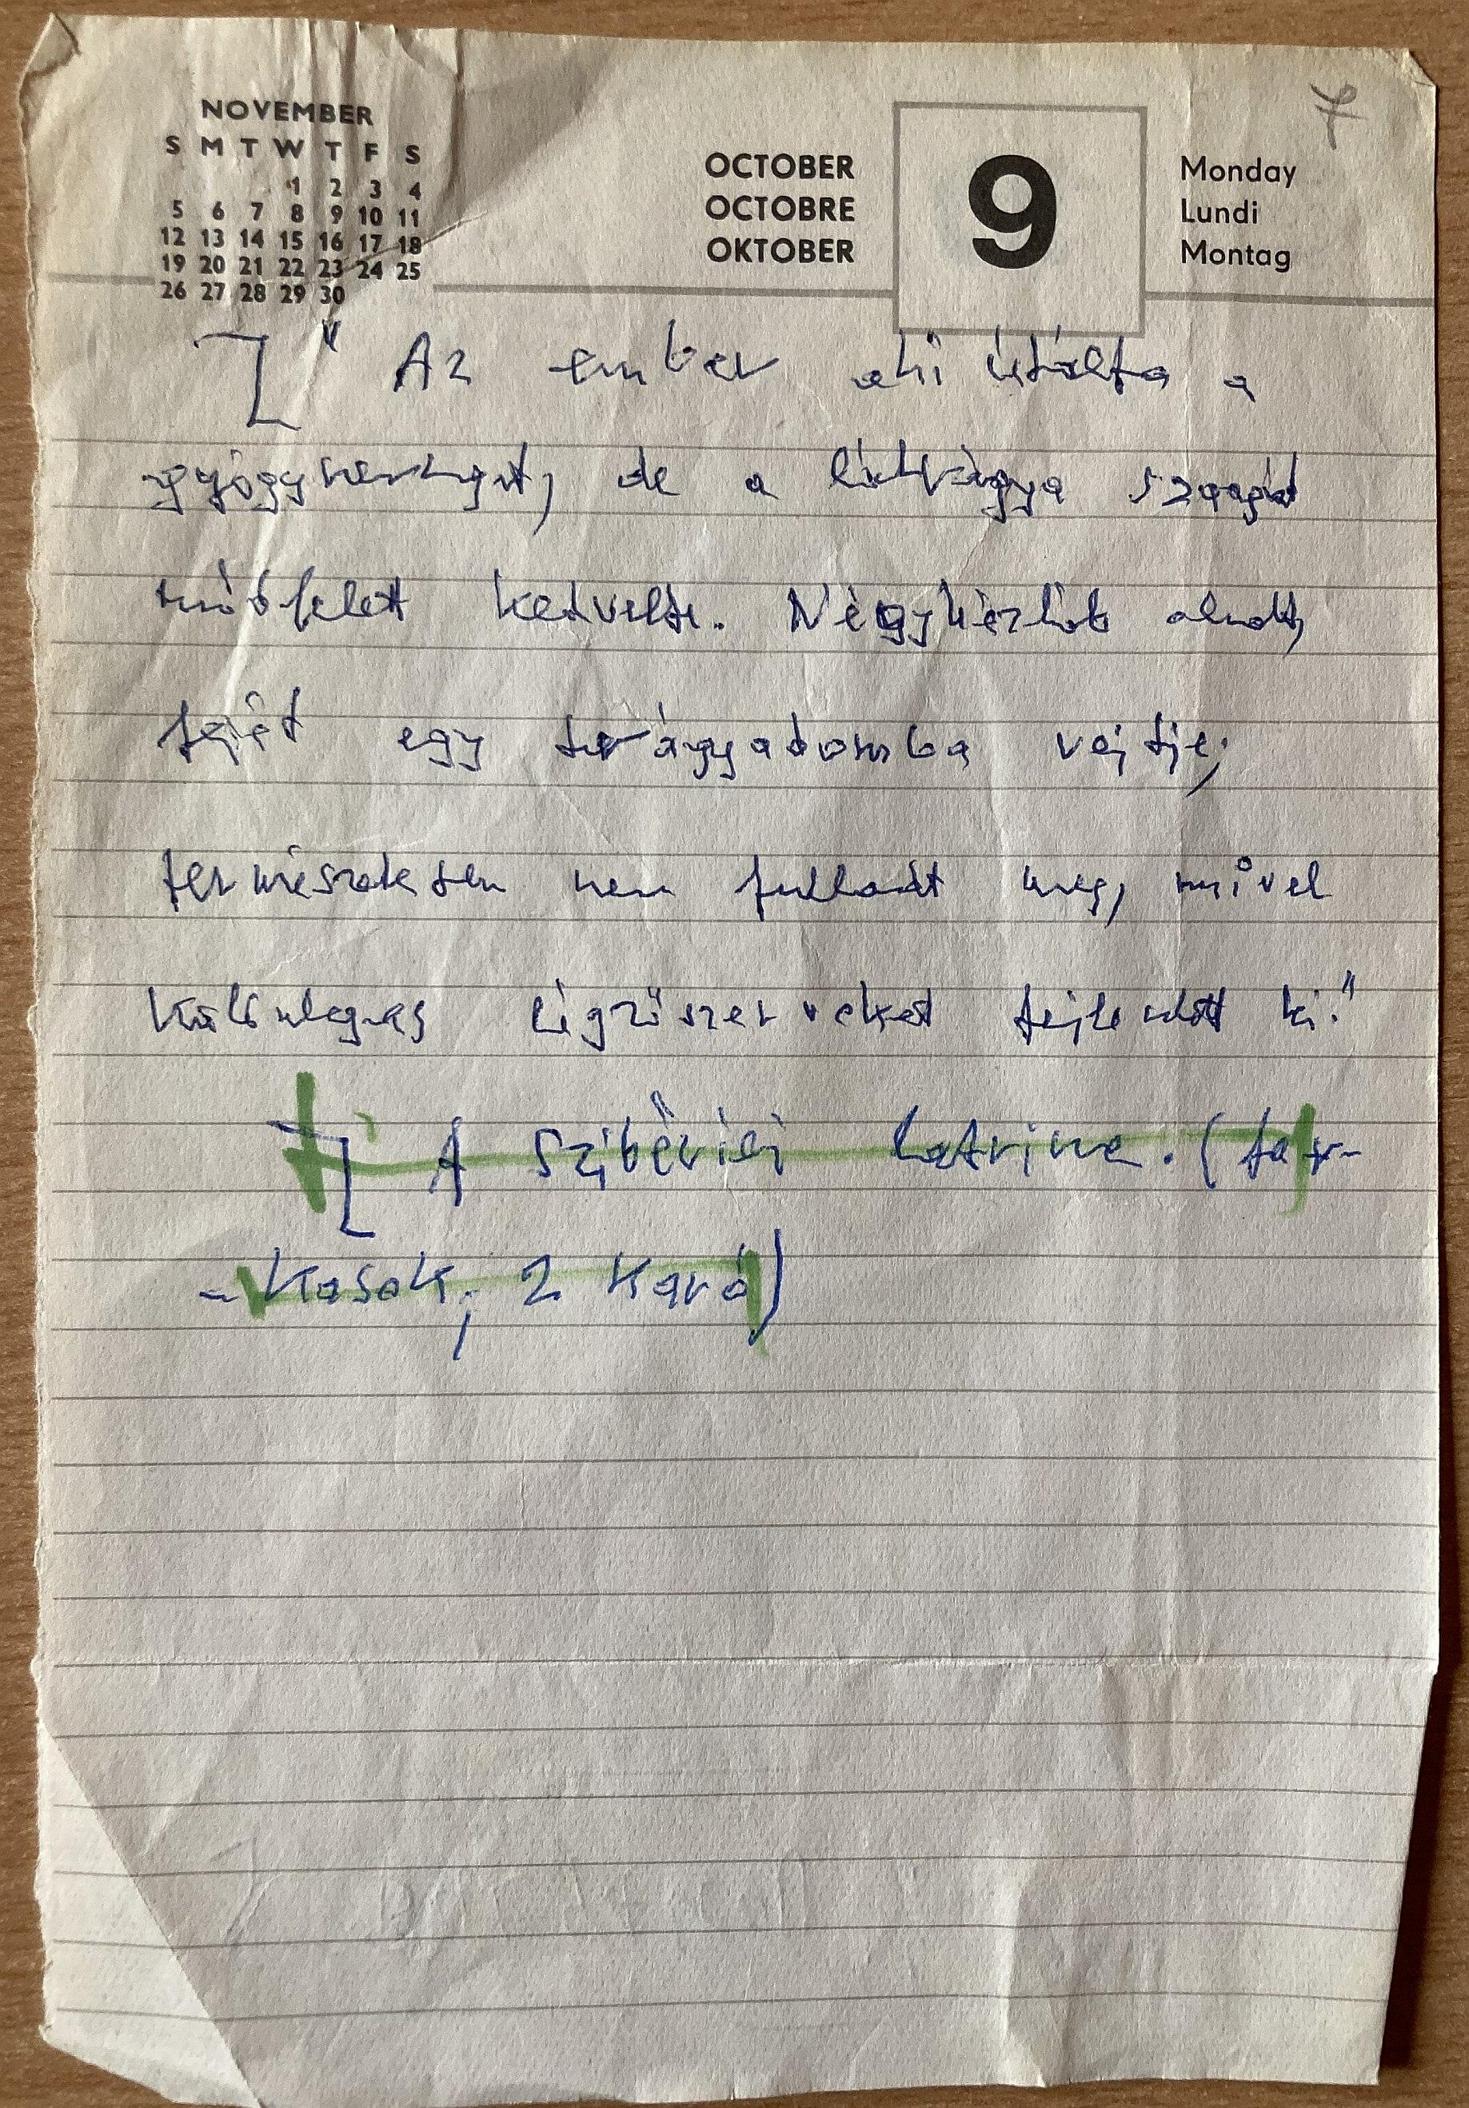 7
NOVEMBER
S M T W T F S
1 2 3 4
5 6 7 8 9 10 11
12 13 14 15 16 17 18
19 20 21 22 23 24 25
26 27 28 29 30
OCTOBER
OCTOBRE
OKTOBER
9
Monday
Lundi
Montag
" Az ember aki útálta a
de a szagát
módfelett kedvelte. Négykézláb aludt,
fejét egy trágyadomba vejtje,
természetesen nem fulladt meg, mivel
különleges légzőszerveket fejlesdett ki."
A szibériai latrina. (far-
-kasok, 2 karó)